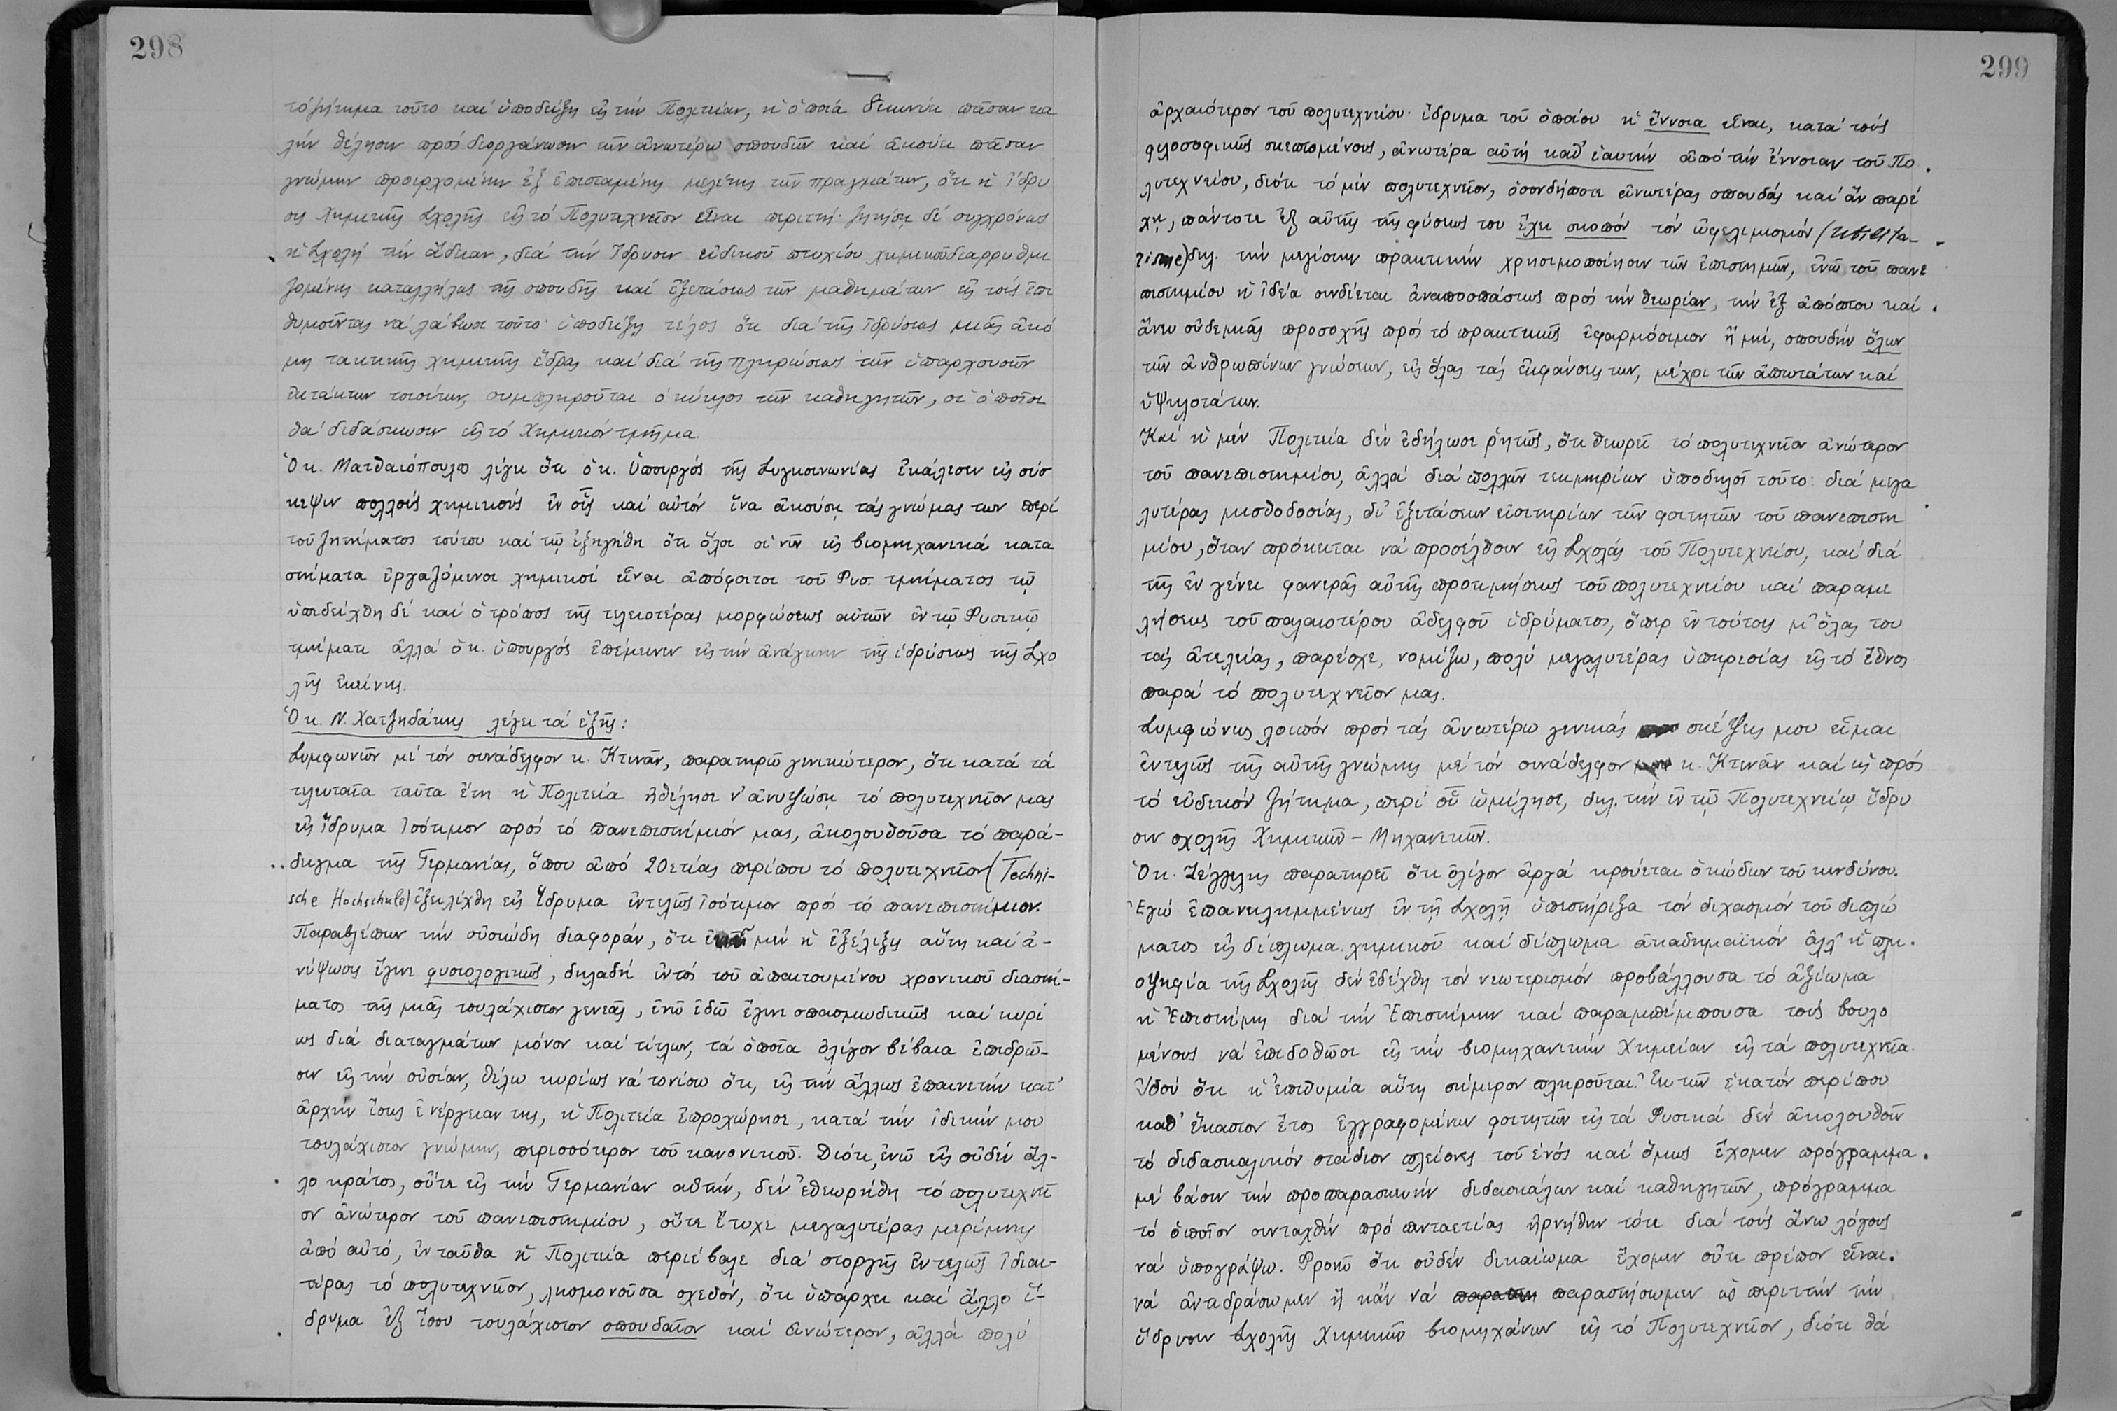 298
τό ζήτημα τοῦτο καί ὑποδείξῃ εἰς τήν Πολιτείαν, ἡ ὁποία δεικνύει πᾶσαν κα
λήν θέλησιν πρός διοργάνωσιν τῶν ἀνωτέρω σπουδῶν καί ἀκούει πᾶσαν
γνώμην προερχομένην ἐξ ἐπισταμένης μελέτης τῶν πραγμάτων, ὅτι ἡ ἵδρυ
σις Χημικῆς Σχολῆς εἰς τό Πολυτεχνεῖον εἶναι περιττή· ζητήσῃ δέ συγχρόνως
ἡ Σχολή τήν ἄδειαν, διά τήν ἵδρυσιν εἰδικοῦ πτυχίου χημικοῦ διαρρυθμι
ζομένης καταλλήλως τῆς σπουδῆς καί ἐξετάσεως τῶν μαθημάτων εἰς τούς ἐπι
θυμοῦντας νά λάβωσι τοῦτο· ὑποδείξῃ τέλος ὅτι διά τῆς ἱδρύσεως μιᾶς ἀκό
μη τακτικῆς χημικῆς ἕδρας καί διά τῆς πληρώσεως τῶν ὑπαρχουσῶν
ἐκτάκτων τοιούτων, συμπληροῦται ὁ κύκλος τῶν καθηγητῶν, οἱ ὁποῖοι
θά διδάσκωσιν εἰς τό Χημικόν τμῆμα.
Ὁ κ. Ματθαιόπουλος λέγει ὅτι ὁ κ. Ὑπουργός τῆς Συγκοινωνίας ἐκάλεσεν εἰς σύσ
κεψιν πολλούς χημικούς ἐν οἷς καί αὐτόν ἵνα ἀκούσῃ τάς γνώμας των περί
τοῦ ζητήματος τούτου καί τῷ ἐξηγήθη ὅτι ὅλοι οἱ νῦν εἰς βιομηχανικά κατα
στήματα ἐργαζόμενοι χημικοί εἶναι ἀπόφοιτοι τοῦ Φυσ. τμήματος τῷ
ὑπεδείχθη δέ καί ὁ τρόπος τῆς τελειοτέρας μορφώσεως αὐτῶν ἐν τῷ Φυσικῷ
τμήματι ἀλλά ὁ κ. ὑπουργός ἐπέμεινεν εἰς τήν ἀνάγκην τῆς ἱδρύσεως τῆς Σχο
λῆς ἐκείνης.
Ὁ κ. Ν. Χατζηδάκης λέγει τά ἑξῆς:
Συμφωνῶν μέ τόν συνάδελφον κ. Κτενᾶν, παρατηρῶ γενικώτερον, ὅτι κατά τά
τελευταῖα ταῦτα ἔτη ἡ Πολιτεία ἠθέλησε ν' ἀνυψώσῃ τό πολυτεχνεῖον μας
εἰς ἵδρυμα ἰσότιμον πρός τό πανεπιστήμιόν μας, ἀκολουθοῦσα τό παρά-
δειγμα τῆς Γερμανίας, ὅπου ἀπό 20ετίας περίπου τό πολυτεχνεῖον (Techni-
sche Hochschule) ἐξελίχθη εἰς ἵδρυμα ἐντελῶς ἰσότιμον πρός τό πανεπιστήμιον.
Παραβλέπων τήν οὐσιώδη διαφοράν, ὅτι ἐκεῖ μέν ἡ ἐξέλιξη αὕτη καί ἀ-
νύψωσις ἔγινε φυσιολογικῶς, δηλαδή ἐντός τοῦ ἀπαιτουμένου χρονικοῦ διαστή-
ματος τῆς μιᾶς τουλάχιστον γενεᾶς, ἐνῷ ἐδῶ ἔγινε σπασμωδικῶς καί κυρί
ως διά διαταγμάτων μόνον καί τίτλων, τά ὁποῖα ὀλίγον βέβαια ἐπιδρῶ-
σιν εἰς τήν οὐσίαν, θέλω κυρίως νά τονίσω ὅτι, εἰς τήν ἄλλως ἐπαινετήν κατ'
ἀρχήν ἴσως ἐνέργειάν της, ἡ Πολιτεία ἐπροχώρησε, κατά τήν ἰδικήν μου
τουλάχιστον γνώμην, περισσότερον τοῦ κανονικοῦ. Διότι, ἐνῷ εἰς οὐδέν ἄλ-
λο κράτος, οὔτε εἰς τήν Γερμανίαν αὐτήν, δέν ἐθεωρήθη τό πολυτεχνεῖ
ον ἀνώτερον τοῦ πανεπιστημίου, οὔτε ἔτυχε μεγαλυτέρας μερίμνης
ἀπό αὐτό, ἐνταῦθα ἡ Πολιτεία περιέβαλε διά στοργῆς ἐντελῶς ἰδιαι-
τέρας τό πολυτεχνεῖον, λησμονοῦσα σχεδόν, ὅτι ὑπάρχει καί ἄλλο ἵ-
δρυμα ἐξ ἴσου τουλάχιστον σπουδαῖον καί ἀνώτερον, ἀλλά πολύ
299
ἀρχαιότερον τοῦ πολυτεχνείου· ἵδρυμα τοῦ ὁποίου ἡ ἔννοια εἶναι, κατά τούς
φιλοσοφικῶς σκεπτομένους, ἀνωτέρα αὐτή καθ' ἑαυτήν ἀπό τήν ἔννοιαν τοῦ Πο
λυτεχνείου, διότι τό μέν πολυτεχνεῖον, ὁσονδήποτε ἀνωτέρας σπουδάς καί ἄν παρέ
χῃ, πάντοτε ἐξ αὐτῆς τῆς φύσεώς του ἔχει σκοπόν τόν ὠφελιμισμόν (Utilita-
risme) δηλ. τήν μεγίστην πρακτικήν χρησιμοποίησιν τῶν ἐπιστημῶν, ἐνῷ τοῦ πανε
πιστημίου ἡ ἰδέα συνδέεται ἀναποσπάστως πρός τήν θεωρίαν, τήν ἐξ ἀπόπτου καί
ἄνευ οὐδεμιᾶς προσοχῆς πρός τό πρακτικῶς ἐφαρμόσιμον ἤ μή, σπουδήν ὅλων
τῶν ἀνθρωπίνων γνώσεων, εἰς ὅλας τάς ἐκφάνσεις των, μέχρι τῶν ἀπωτάτων καί
ὑψηλοτάτων.
Καί ἡ μέν Πολιτεία δέν ἐδήλωσε ῥητῶς, ὅτι θεωρεῖ τό πολυτεχνεῖον ἀνώτερον
τοῦ πανεπιστημίου, ἀλλά διά πολλῶν τεκμηρίων ὑποδηλοῖ τοῦτο: διά μεγα
λυτέρας μισθοδοσίας, δι' ἐξετάσεων εἰσιτηρίων τῶν φοιτητῶν τοῦ πανεπιστη
μίου, ὅταν πρόκειται νά προσέλθουν εἰς Σχολάς τοῦ Πολυτεχνείου, καί διά
τῆς ἐν γένει φανερᾶς αὐτῆς προτιμήσεως τοῦ πολυτεχνείου καί παραμε
λήσεως τοῦ παλαιοτέρου ἀδελφοῦ ἱδρύματος, ὅπερ ἐν τούτοις μ' ὅλας του
τάς ἀτελείας, παρέσχε, νομίζω, πολύ μεγαλυτέρας ὑπηρεσίας εἰς τό Ἔθνος
παρά τό πολυτεχνεῖον μας.
Συμφώνως λοιπόν πρός τάς ἀνωτέρω γενικάς σκέψεις μου εἶμαι
ἐντελῶς τῆς αὐτῆς γνώμης μέ τόν συνάδελφον κ. Κτενᾶν καί ὡς πρός
τό εἰδικόν ζήτημα, περί οὗ ὡμίλησε, δηλ. τήν ἐν τῷ Πολυτεχνείῳ ἵδρυ
σιν σχολῆς Χημικῶν - Μηχανικῶν.
Ὁ κ. Ζέγγελης παρατηρεῖ ὅτι ὀλίγον ἀργά κρούεται ὁ κώδων τοῦ κινδύνου.
Ἐγώ ἐπανειλημμένως ἐν τῇ Σχολῇ ὑπεστήριξα τόν διχασμόν τοῦ διπλώ
ματος εἰς δίπλωμα χημικοῦ καί δίπλωμα ἀκαδημαϊκόν ἀλλ' ἡ πλει
οψηφία τῆς Σχολῆς δέν ἐδέχθη τόν νεωτερισμόν προβάλλουσα τό ἀξίωμα
ἡ Ἐπιστήμη διά τήν Ἐπιστήμην καί παραπέμπουσα τούς βουλο
μένους νά ἐπιδοθῶσι εἰς τήν βιομηχανικήν Χημείαν εἰς τά πολυτεχνεῖα.
Ἰδού ὅτι ἡ ἐπιθυμία αὕτη σήμερον πληροῦται. Ἐκ τῶν ἑκατόν περίπου
καθ' ἕκαστον ἔτος ἐγγραφομένων φοιτητῶν εἰς τά Φυσικά δέν ἀκολουθοῦν
τό διδασκαλικόν στάδιον πλείονες τοῦ ἑνός καί ὅμως ἔχομεν πρόγραμμα
μέ βάσιν τήν προπαρασκευήν διδασκάλων καί καθηγητῶν, πρόγραμμα
τό ὁποῖον συνταχθέν πρό πενταετίας ἠρνήθην τότε διά τούς ἄνω λόγους
νά ὑπογράψω. Φρονῶ ὅτι οὐδέν δικαίωμα ἔχομεν οὔτε πρέπον εἶναι
νά ἀντιδράσωμεν ἤ κἄν νά παραστήσωμεν ὡς περιττήν τήν
ἵδρυσιν Σχολῆς Χημικῶν βιομηχάνων εἰς τό Πολυτεχνεῖον, διότι θά